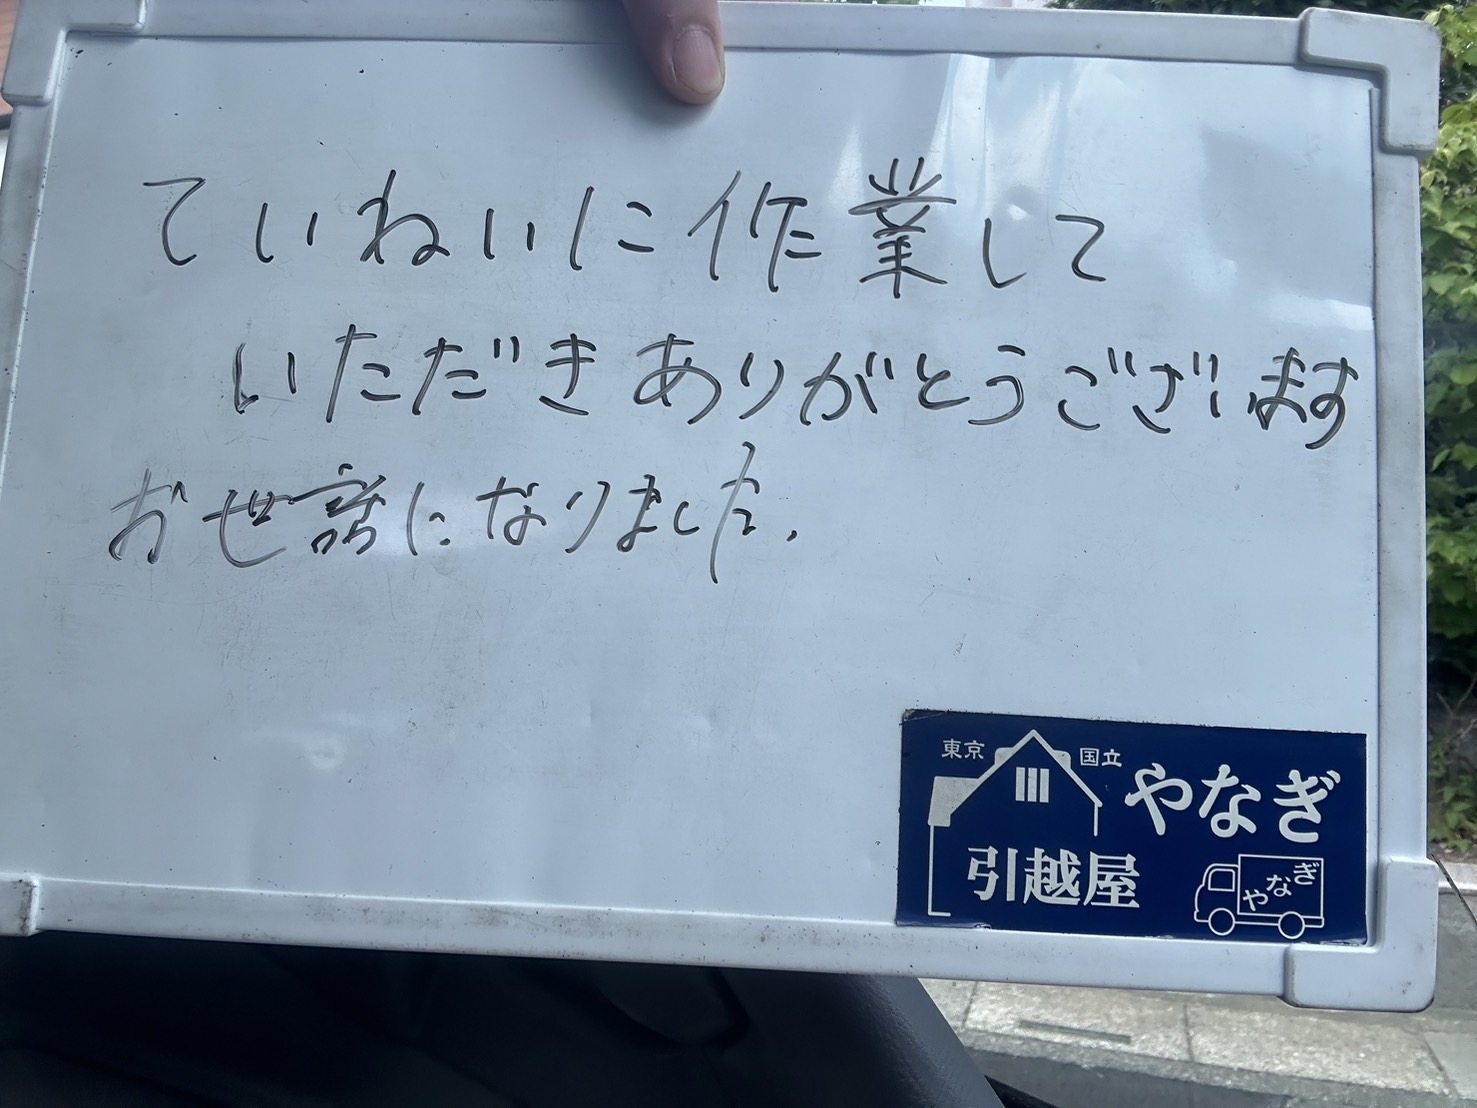 ていねいに作業して
いただきありがとうございます
お世話になりました.
東京 国立
やなぎ
引越屋
やなぎ